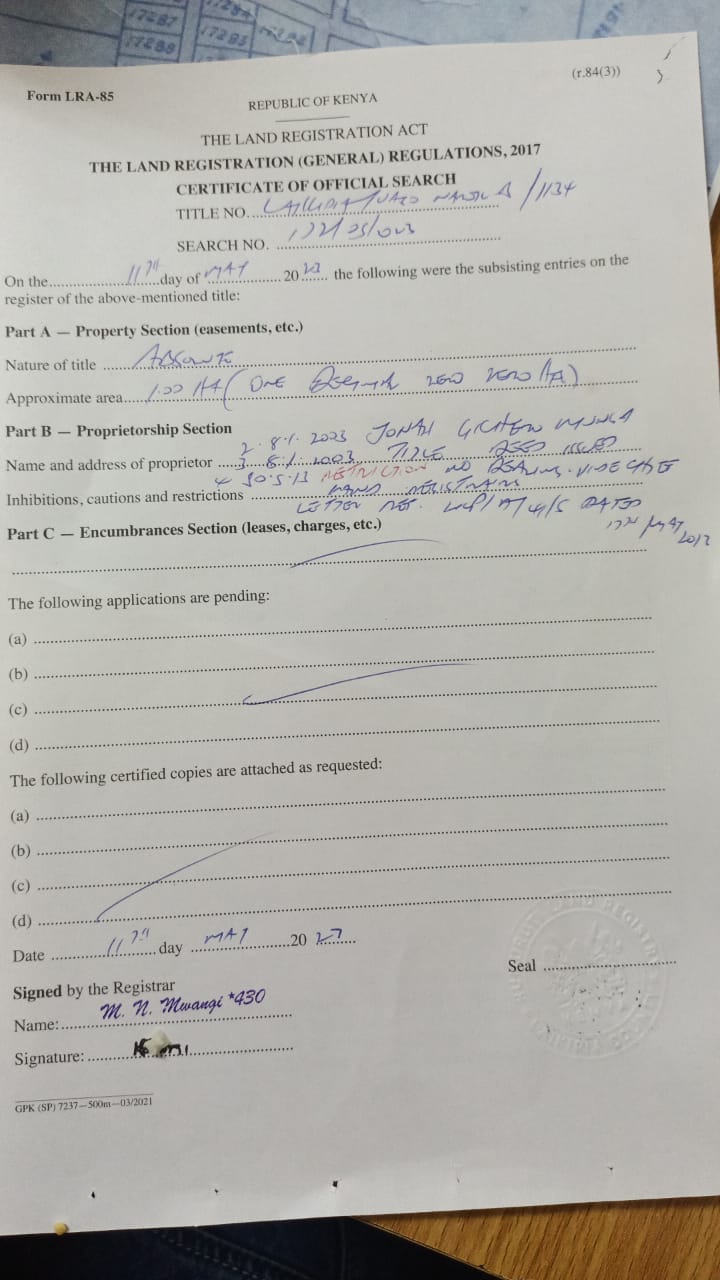 17287
17288
17293
Form LRA-85
(r.84(3))
REPUBLIC OF KENYA
THE LAND REGISTRATION ACT
THE LAND REGISTRATION (GENERAL) REGULATIONS, 2017
CERTIFICATE OF OFFICIAL SEARCH
TITLE NO. LAIKIPIA/ B/1134
SEARCH NO.
On the 11TH day of MAY 2023 the following were the subsisting entries on the
register of the above-mentioned title:
Part A — Property Section (easements, etc.)
Nature of title ABSOLUTE
Approximate area 1.00 HA (ONE DECIMAL ZERO ZERO HA)
Part B — Proprietorship Section
2. 8.1.2003 JONAH
Name and address of proprietor 3. 8.1.2003 TITLE DEED ISSUED
4 30.5.13 RESTRICTION NO DEALING. VIDE CHIEF
Inhibitions, cautions and restrictions LAND REGISTRARS
LETTER REF. DATED
Part C — Encumbrances Section (leases, charges, etc.)
The following applications are pending:
(a)
(b)
(c)
(d)
The following certified copies are attached as requested:
(a)
(b)
(c)
(d)
Date 11TH day MAY 2023
Seal
Signed by the Registrar
Name: M. N. Mwangi *430
Signature:
GPK (SP) 7237—500m—03/2021